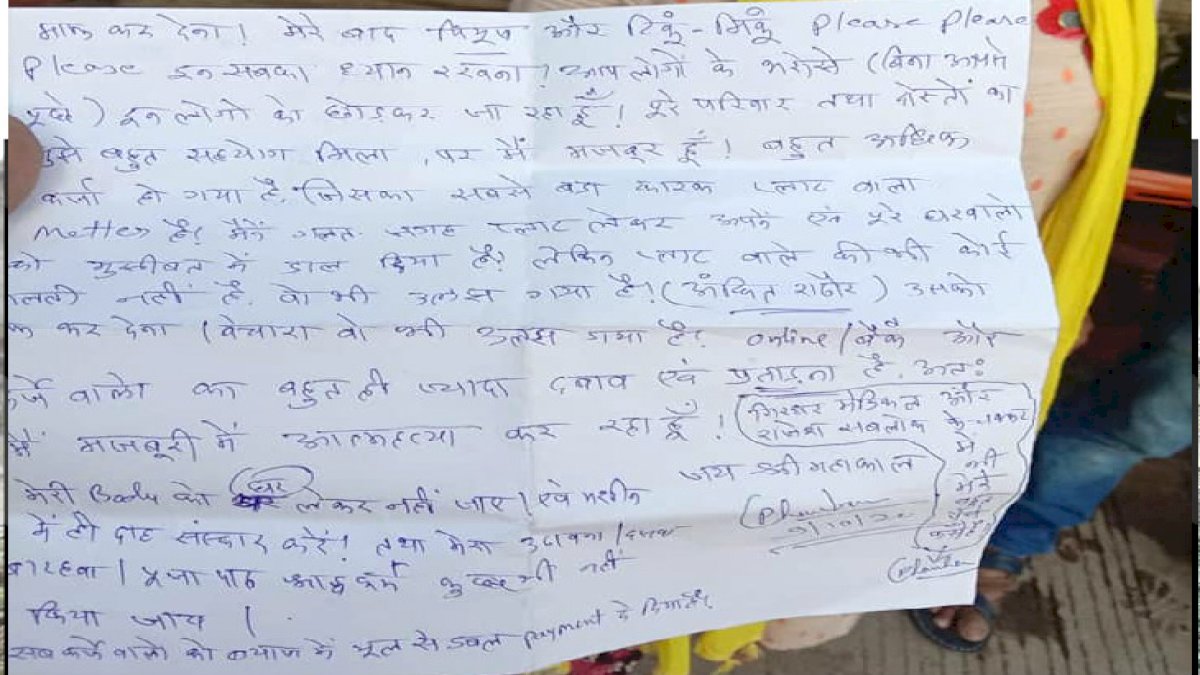 माफ कर देना! मेरे बाद विभूष और टिंकू-मिंकू Please Please
Please इन सबका ध्यान रखना? आप लोगों के भरोसे (बिना अपने
) इन लोगो को छोड़कर जा रहा हूँ! पूरे परिवार तथा दोस्तों का
मुझे बहुत सहयोग मिला, पर मैं मजबूर हूँ! बहुत अधिक
कर्जा हो गया है, जिसका सबसे बड़ा कारक प्लाट वाला
Matter है? मैंने गलत जगह प्लाट लेकर अपने एवं पूरे घरवालो
को मुसीबत में डाल दिया है? लेकिन प्लाट वाले की भी कोई
गलती नहीं है, वो भी उलझ गया है! (अंकित राठौर) उसको
कर देना (बेचारा वो भी उलझ गया है? online/बैंक और
कर्जे वालो का बहुत ही ज्यादा दबाव एवं प्रताड़ना है, अतः
मैं मजबूरी में आत्महत्या कर रहा हूँ!
गिरधर मेडिकल और
राजेश सबलोक के चक्कर
में
नहीं
जय श्री महाकाल
मेरी Body को घर लेकर नहीं जाए! एवं मशीन
में ही दाह संस्कार करें! तथा मेरा उठावना/
बारहवा/पूजा पाठ कुछ भी नहीं
किया जाय!
सब कर्जे वालो को ब्याज में मूल से डबल payment दे दिया है!